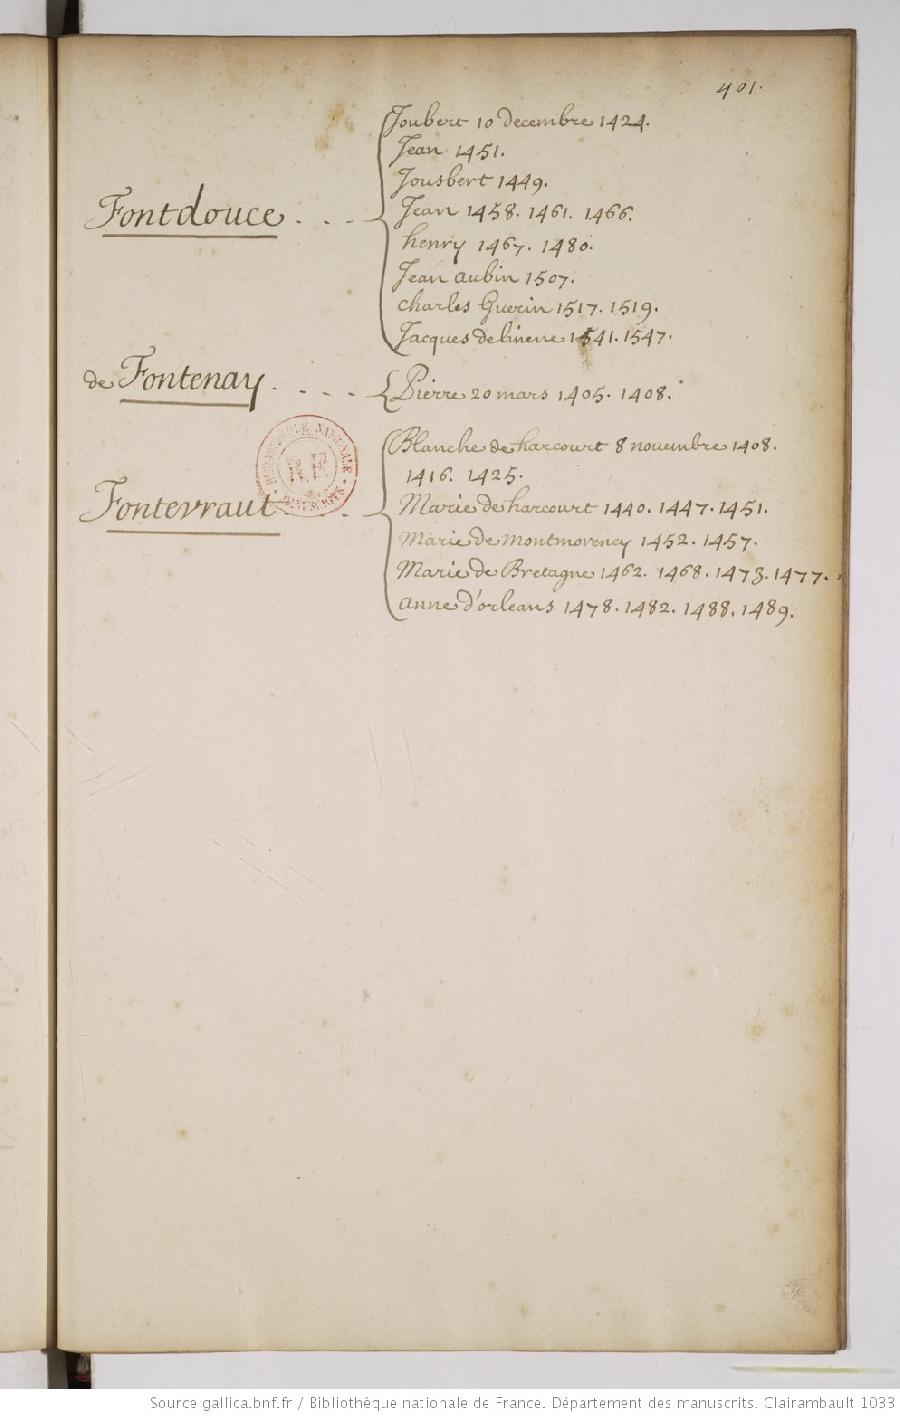 401.
Joubert 10 decembre 1424.
Jean 1451.
Jousbert 1449.
Fontdouce . . . Jean 1458. 1461. 1466.
henry 1467. 1480.
Jean aubin 1507.
charles Guerin 1517. 1519.
Jacques de 1541. 1547.
de Fontenay . . . . Pierre 20 mars 1405. 1408.
Blanche de harcourt 8 novembre 1408.
1416. 1425.
Fontevraut . . . Marie de harcourt 1440. 1447. 1451.
Marie de Montmorency 1452. 1457.
Marie de Bretagne 1462. 1468. 1473. 1477.
anne d'orleans 1478. 1482. 1488. 1489.
BIBLIOTHEQUE NATIONALE
MANUSCRITS
Source gallica.bnf.fr / Bibliothèque nationale de France. Département des manuscrits. Clairambault 1033